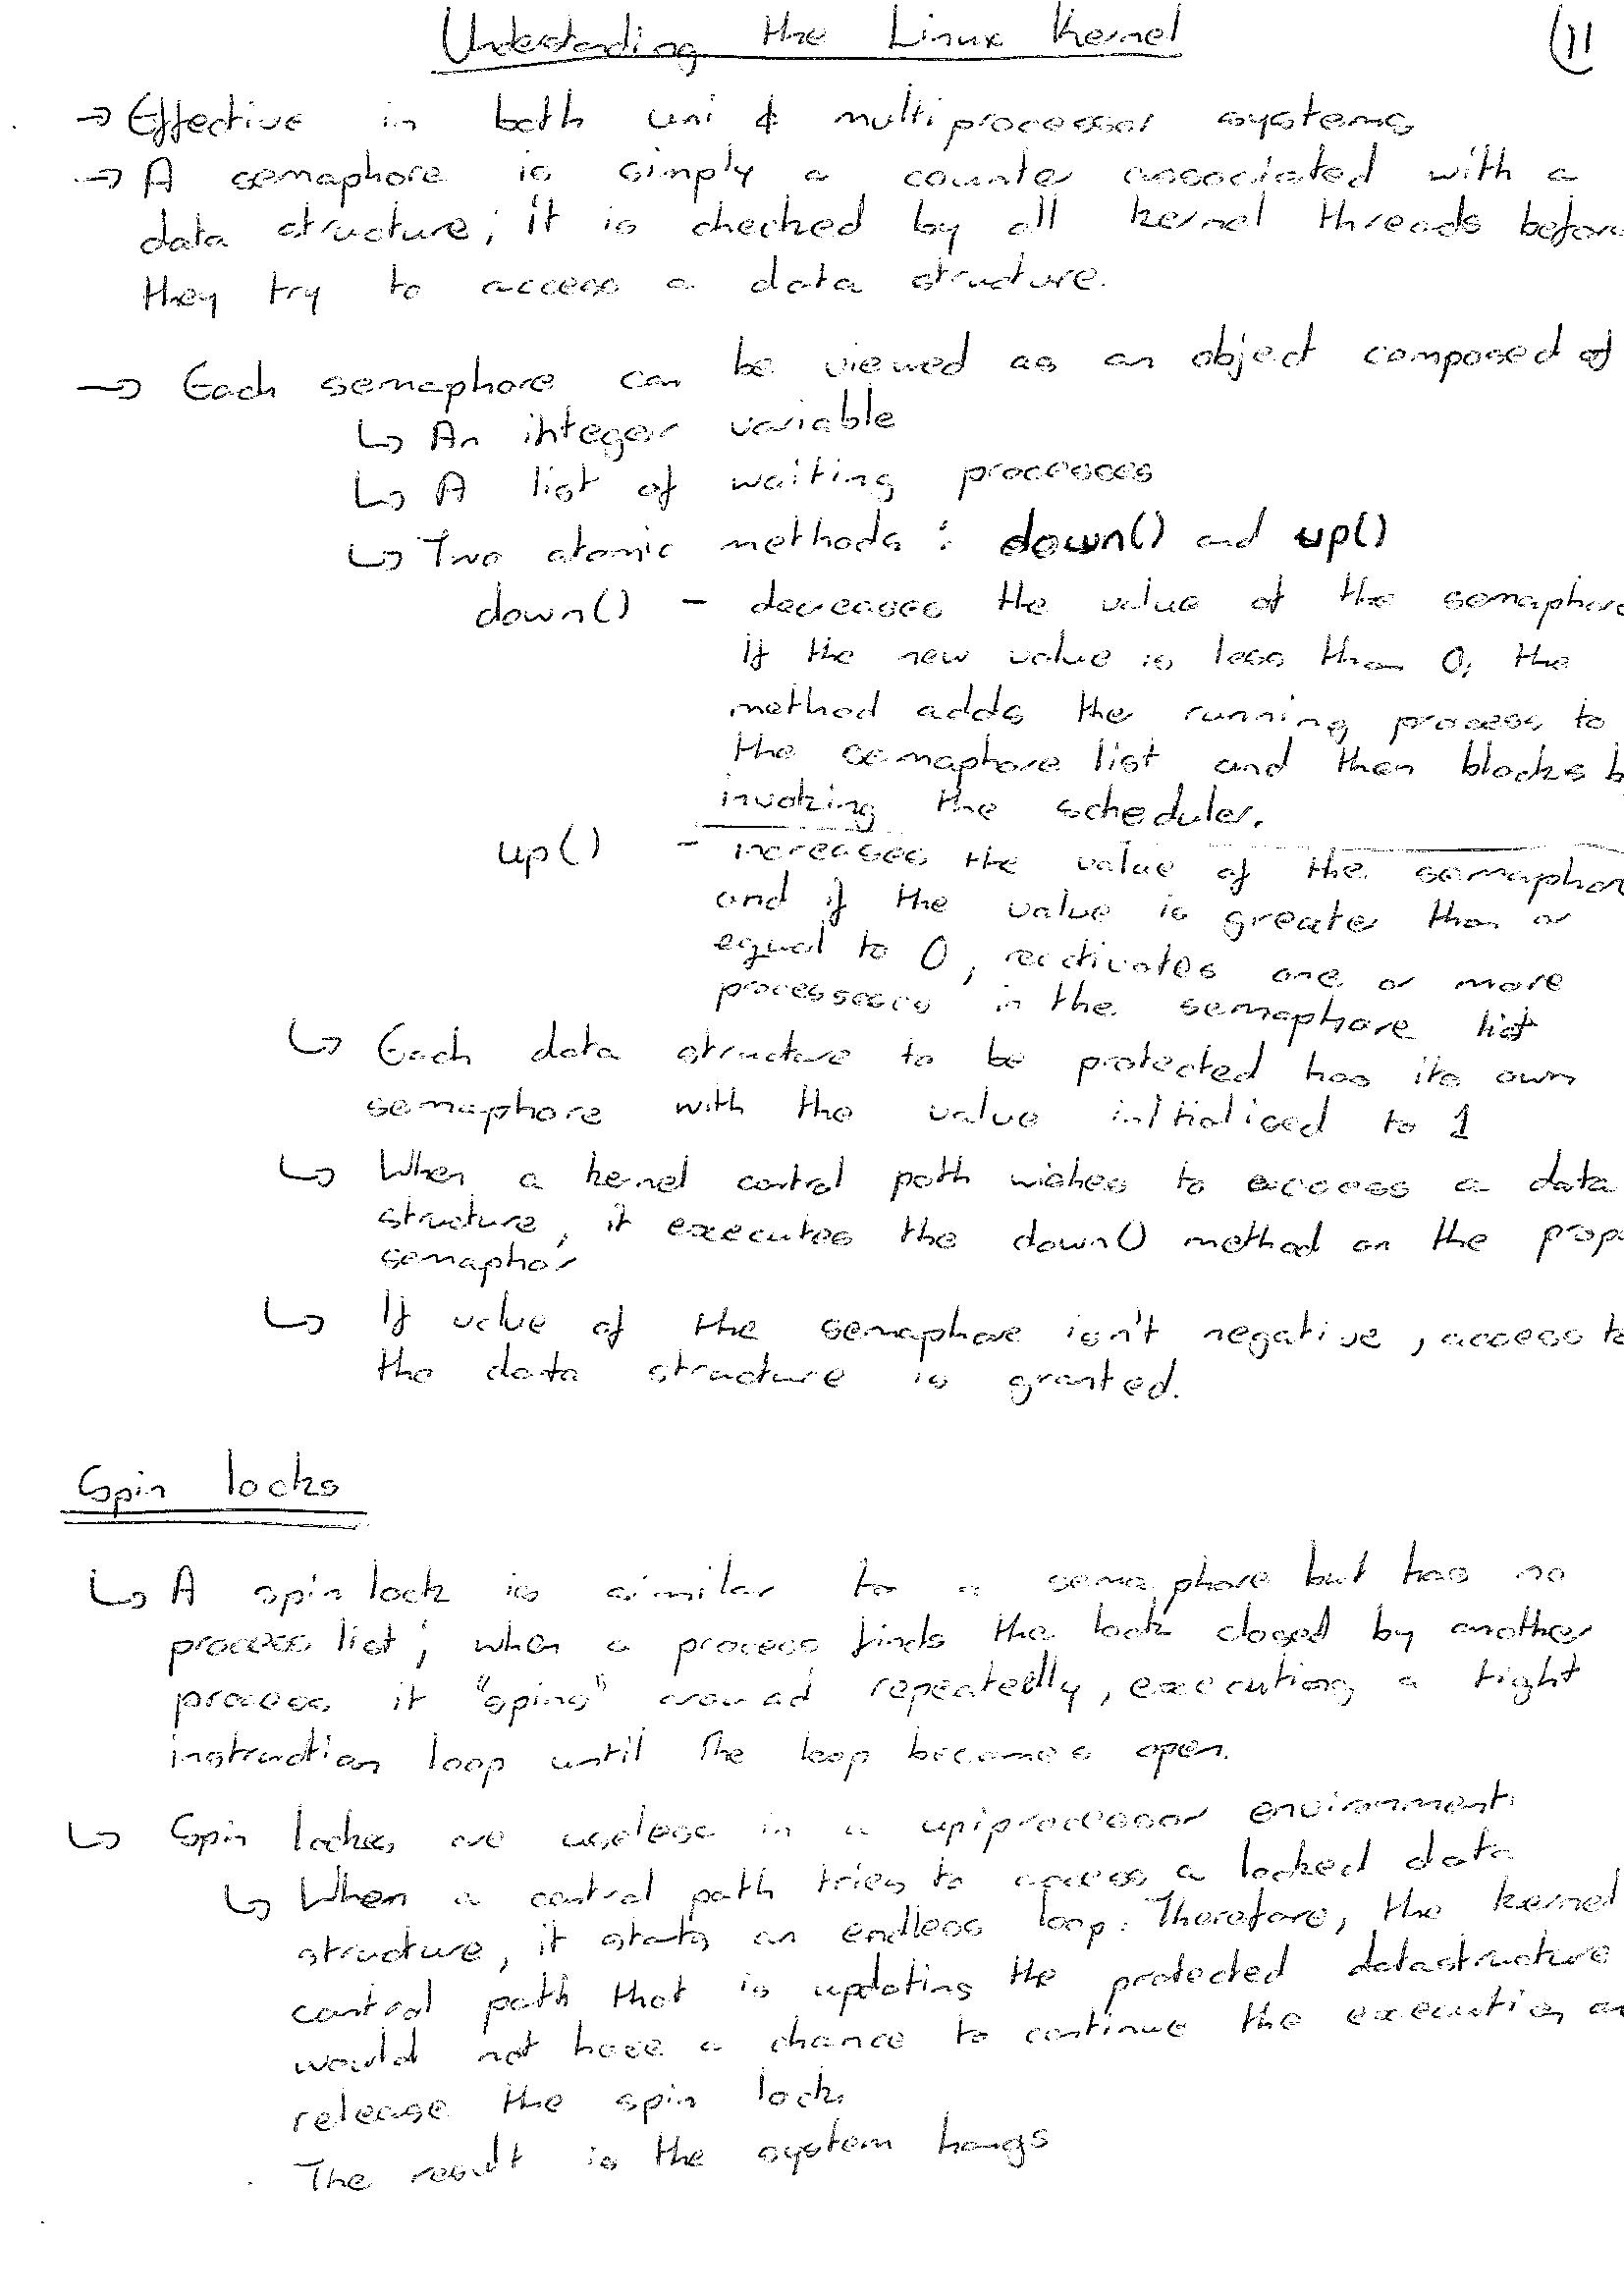 Understanding the Linux Kernel (11
→ Effective in both uni & multiprocessor systems
→ A semaphore is simply a counter associated with a
data structure; it is checked by all kernel threads before
they try to access a data structure.
→ Each semaphore can be viewed as an object composed of
↳ An integer variable
↳ A list of waiting processes
↳ Two atomic methods : down() and up()
down() - decreases the value of the semaphore
If the new value is less than 0, the
method adds the running process to
the semaphore list and then blocks b
invoking the scheduler.
up() - increases the value of the semaphore
and if the value is greater than or
equal to 0, reactivates one or more
processeses in the semaphore list
↳ Each data structure to be protected has its own
semaphore with the value initialised to 1
↳ When a kernel control path wishes to access a data
structure, it executes the down() method on the prop
semaphor
↳ If value of the semaphore isn't negative, access to
the data structure is granted.
Spin locks
↳ A spin lock is similar to a semaphore but has no
process list; when a process finds the lock closed by another
process it "spins" around repeatedly, executing a tight
instruction loop until the loop becomes open.
↳ Spin locks are useless in a uniprocessor environment.
↳ When a control path tries to access a locked data
structure, it starts an endless loop. Therefore, the kernel
control path that is updating the protected datastructure
would not have a chance to continue the execution an
release the spin lock
The result is the system hangs